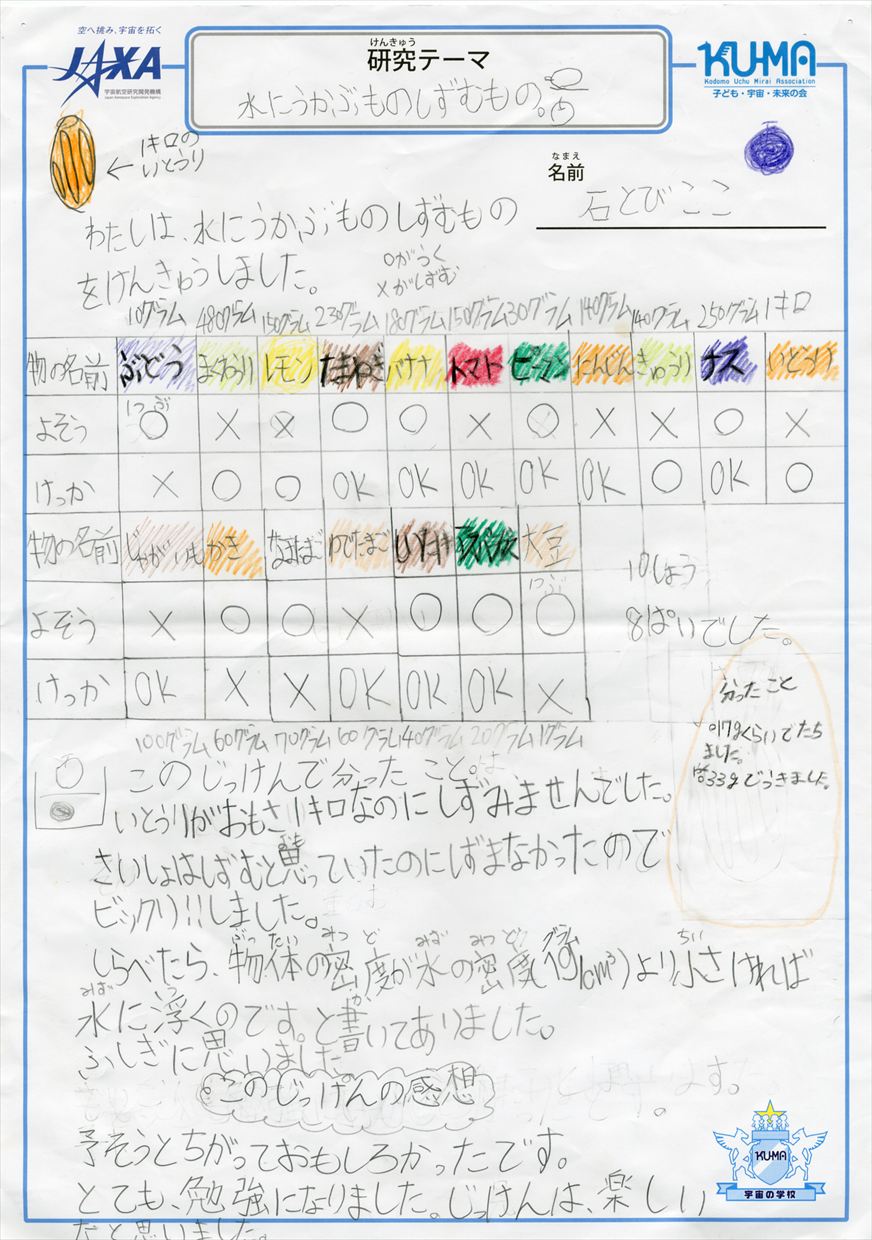 空へ挑み、宇宙を拓く
JAXA
宇宙航空研究開発機構
Japan Aerospace Exploration Agency
けんきゅう
研究テーマ
水にうかぶものしずむもの。
KU-MA
Kodomo Uchu Mirai Association
子ども・宇宙・未来の会
1キロの
いとうり
なまえ
名前
石とびここ
わたしは、水にうかぶものしずむもの
をけんきゅうしました。
○がうく
×がしずむ
10グラム 480グラム 150グラム 230グラム 180グラム 150グラム 30グラム 140グラム 140グラム 250グラム 1キロ
物の名前 ぶどう まくわうり レモン たまねぎ バナナ トマト ピーマン にんじん きゅうり ナス いとうり
1つぶ
よそう ○ × × ○ ○ × ○ × × ○ ×
けっか × ○ ○ OK OK OK OK OK ○ OK ○
物の名前 じゃがいも かき なまたまご ゆでたまご しいたけ 大豆
1つぶ
よそう × ○ ○ × ○ ○ ○
けっか OK × × OK OK OK ×
10しょう
8ぱいでした。
100グラム 60グラム 70グラム 60グラム 40グラム 20グラム 1グラム
分ったこと
○17gくらいでたち
ました。
33gでうきました。
このじっけんで分ったこと。は
いとうりがおもさ1キロなのにしずみませんでした。
おも
さいしょはしずむと思っていたのにしずまなかったので
ビックリ!!しました。
ぶったい みつど みず みつど グラム ちい
しらべたら、物体の密度が水の密度(1g/cm³)より小さければ
みず う か
水に浮くのです。と書いてありました。
ふしぎに思いました
このじっけんの感想
予そうとちがっておもしろかったです。
とても、勉強になりました。じっけんは、楽しい
だと思いました。
KU-MA
宇宙の学校